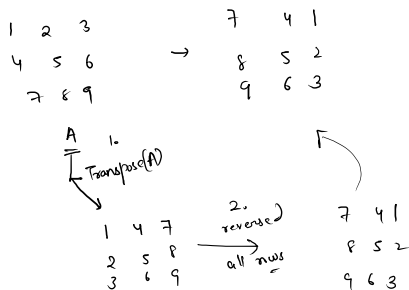 1 2 3
4 5 6
7 8 9
→
7 4 1
8 5 2
9 6 3
A
1.
Transpose(A)
1 4 7
2 5 8
3 6 9
2.
reversed
all rows
7 4 1
8 5 2
9 6 3